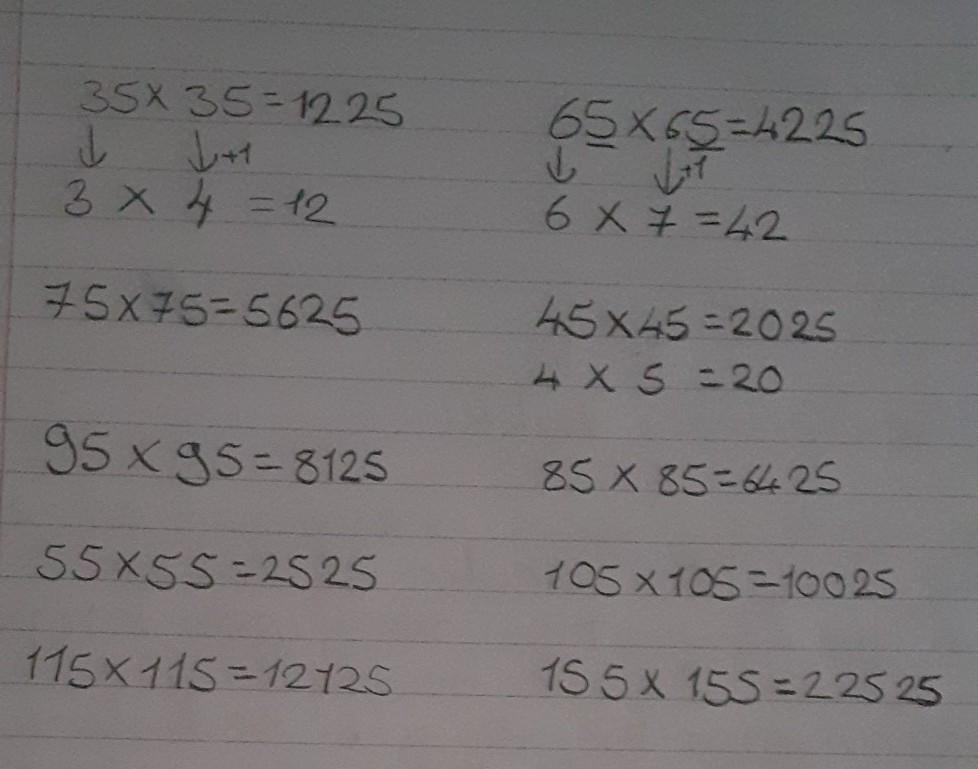 35 × 35 = 1225
↓ ↓+1
3 × 4 = 12
65 × 65 = 4225
↓ ↓+1
6 × 7 = 42
75 × 75 = 5625
45 × 45 = 2025
4 × 5 = 20
95 × 95 = 8125
85 × 85 = 6425
55 × 55 = 2525
105 × 105 = 10025
115 × 115 = 12125
155 × 155 = 22525